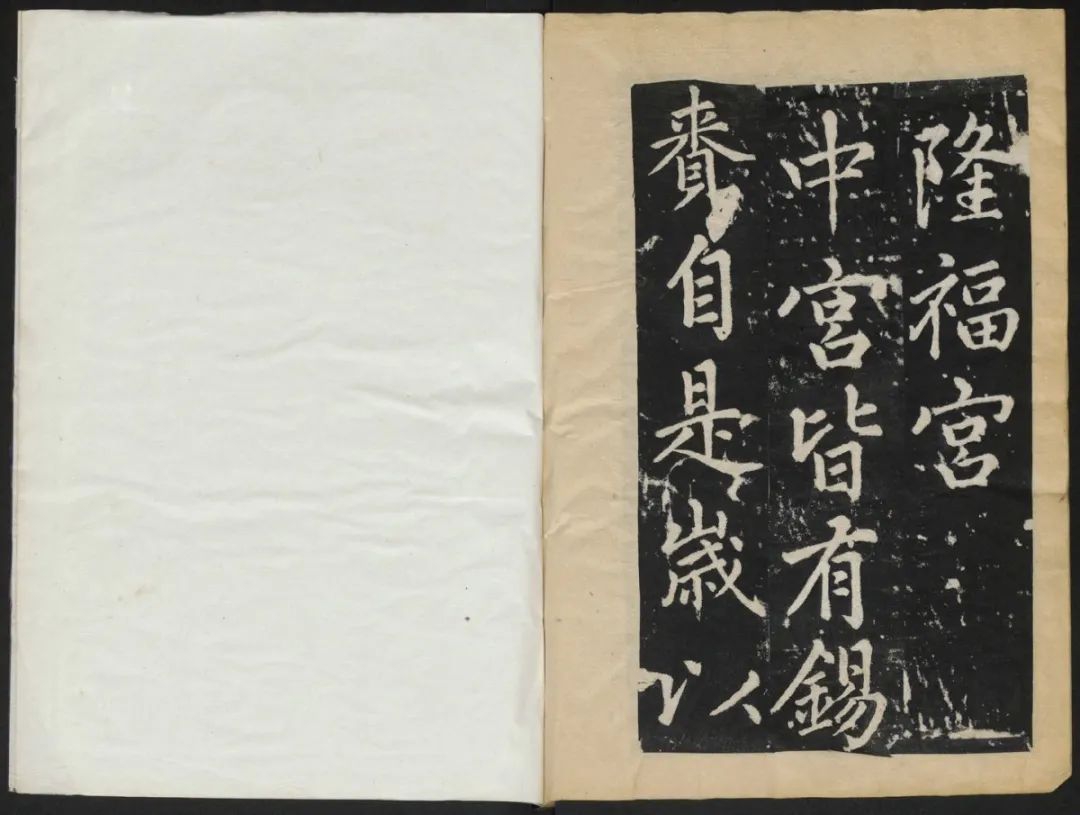 隆福宮
中宮皆有錫
賚自是歳以